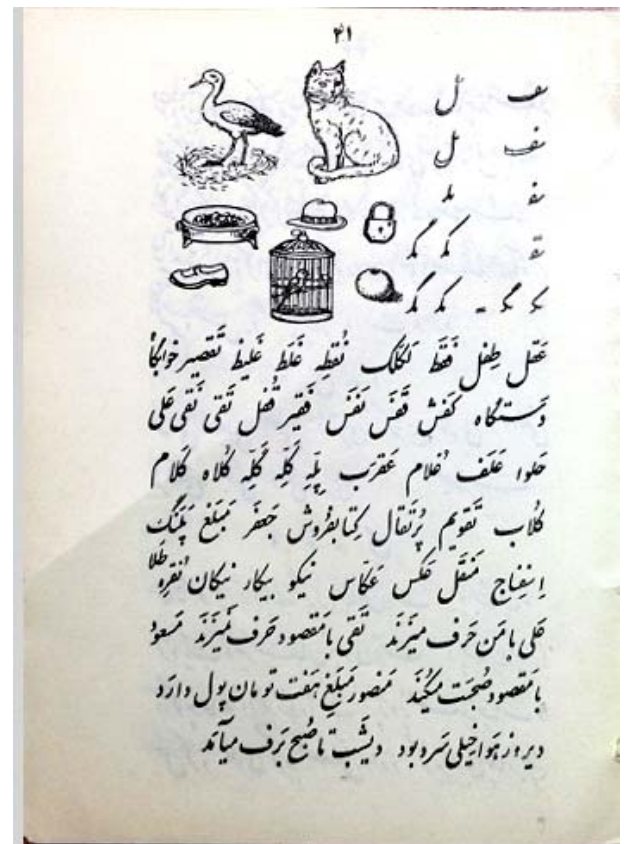 ۴۱
ف ل
ف ل
ف ل
عَقل طِفل فَقَط لَکلَک نُقطه غَلَط غَلیظ تَقصیر
دَستگاه کَفش قَفَس نَفَس فَقیر قُفل تَقی نَقی عَلی
حَلوا عَلَف غُلام عَقرَب پِلّه کَلّه گَلّه کُلاه کَلام
گُلاب تَقویم پُرتَقال کِتابفُروش جَعفَر مَبلَغ پَلَنگ
مَنقَل عَکس عَکّاس نیکو بیکار نیکان نُقره طَلا
عَلی با مَن حَرف میزَنَد تَقی با مَقصود حَرف میزَنَد مَسعود
با مَقصود صُحبَت میکُنَد مَنصور مَبلَغِ هَفت تومان پول دارَد
دیروز هَوا خِیلی سَرد بود دیشَب تا صُبح بَرف میآمَد